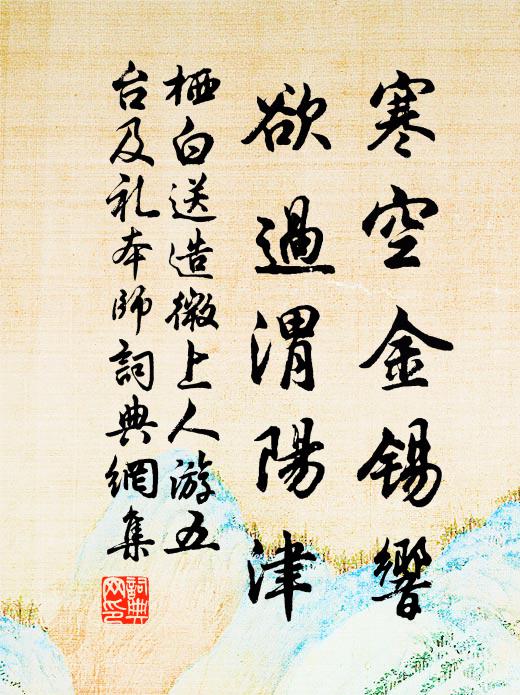 寒空金锡響
欲過渭陽津
栖白送造微上人游五
台及礼本師詞典網集
詞典
网印